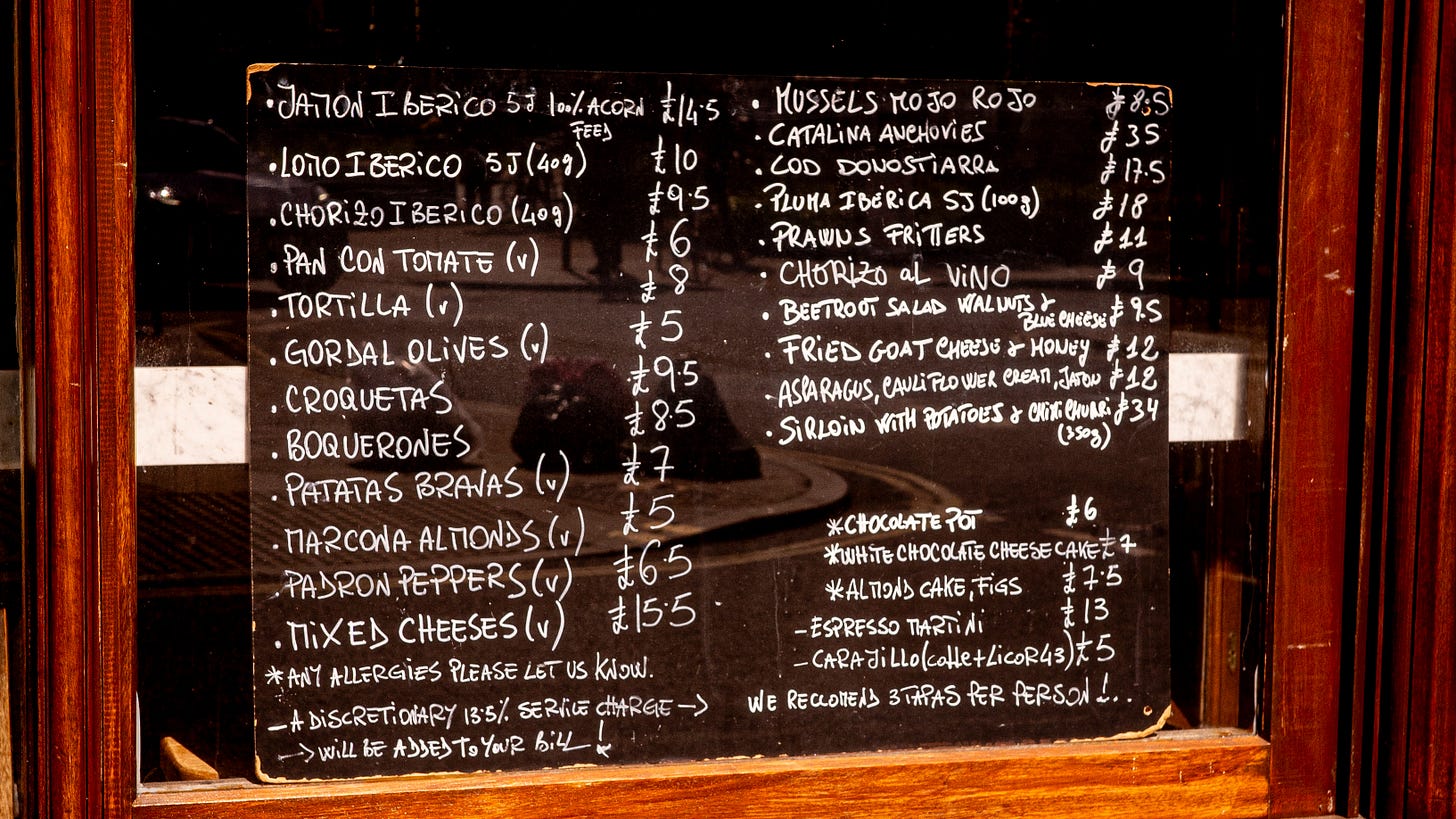 •JAMON IBERICO 5J 100% ACORN £14.5
FEED
•LOMO IBERICO 5J (40g) £10
•CHORIZO IBERICO (40g) £9.5
•PAN CON TOMATE (v) £6
•TORTILLA (v) £8
•GORDAL OLIVES (v) £5
•CROQUETAS £9.5
•BOQUERONES £8.5
•PATATAS BRAVAS (v) £7
•MARCONA ALMONDS (v) £5
•PADRON PEPPERS (v) £6.5
•MIXED CHEESES (v) £15.5
*ANY ALLERGIES PLEASE LET US KNOW.
-A DISCRETIONARY 13.5% SERVICE CHARGE →
→ WILL BE ADDED TO YOUR BILL !
• MUSSELS MOJO ROJO £8.5
•CATALINA ANCHOVIES £35
•COD DONOSTIARRA £17.5
•PLUMA IBÉRICA 5J (100g) £18
•PRAWNS FRITTERS £11
•CHORIZO al VINO £9
•BEETROOT SALAD WALNUTS &
BLUE CHEESE £9.5
•FRIED GOAT CHEESE & HONEY £12
•ASPARAGUS, CAULIFLOWER CREAM, JAMON £12
•SIRLOIN WITH POTATOES & CHIMICHURRI £34
(350g)
*CHOCOLATE POT £6
*WHITE CHOCOLATE CHEESE CAKE £7
*ALMOND CAKE, FIGS £7.5
-ESPRESSO MARTINI £13
-CARAJILLO (coffe+LICOR43) £5
WE RECCOMEND 3 TAPAS PER PERSON !..